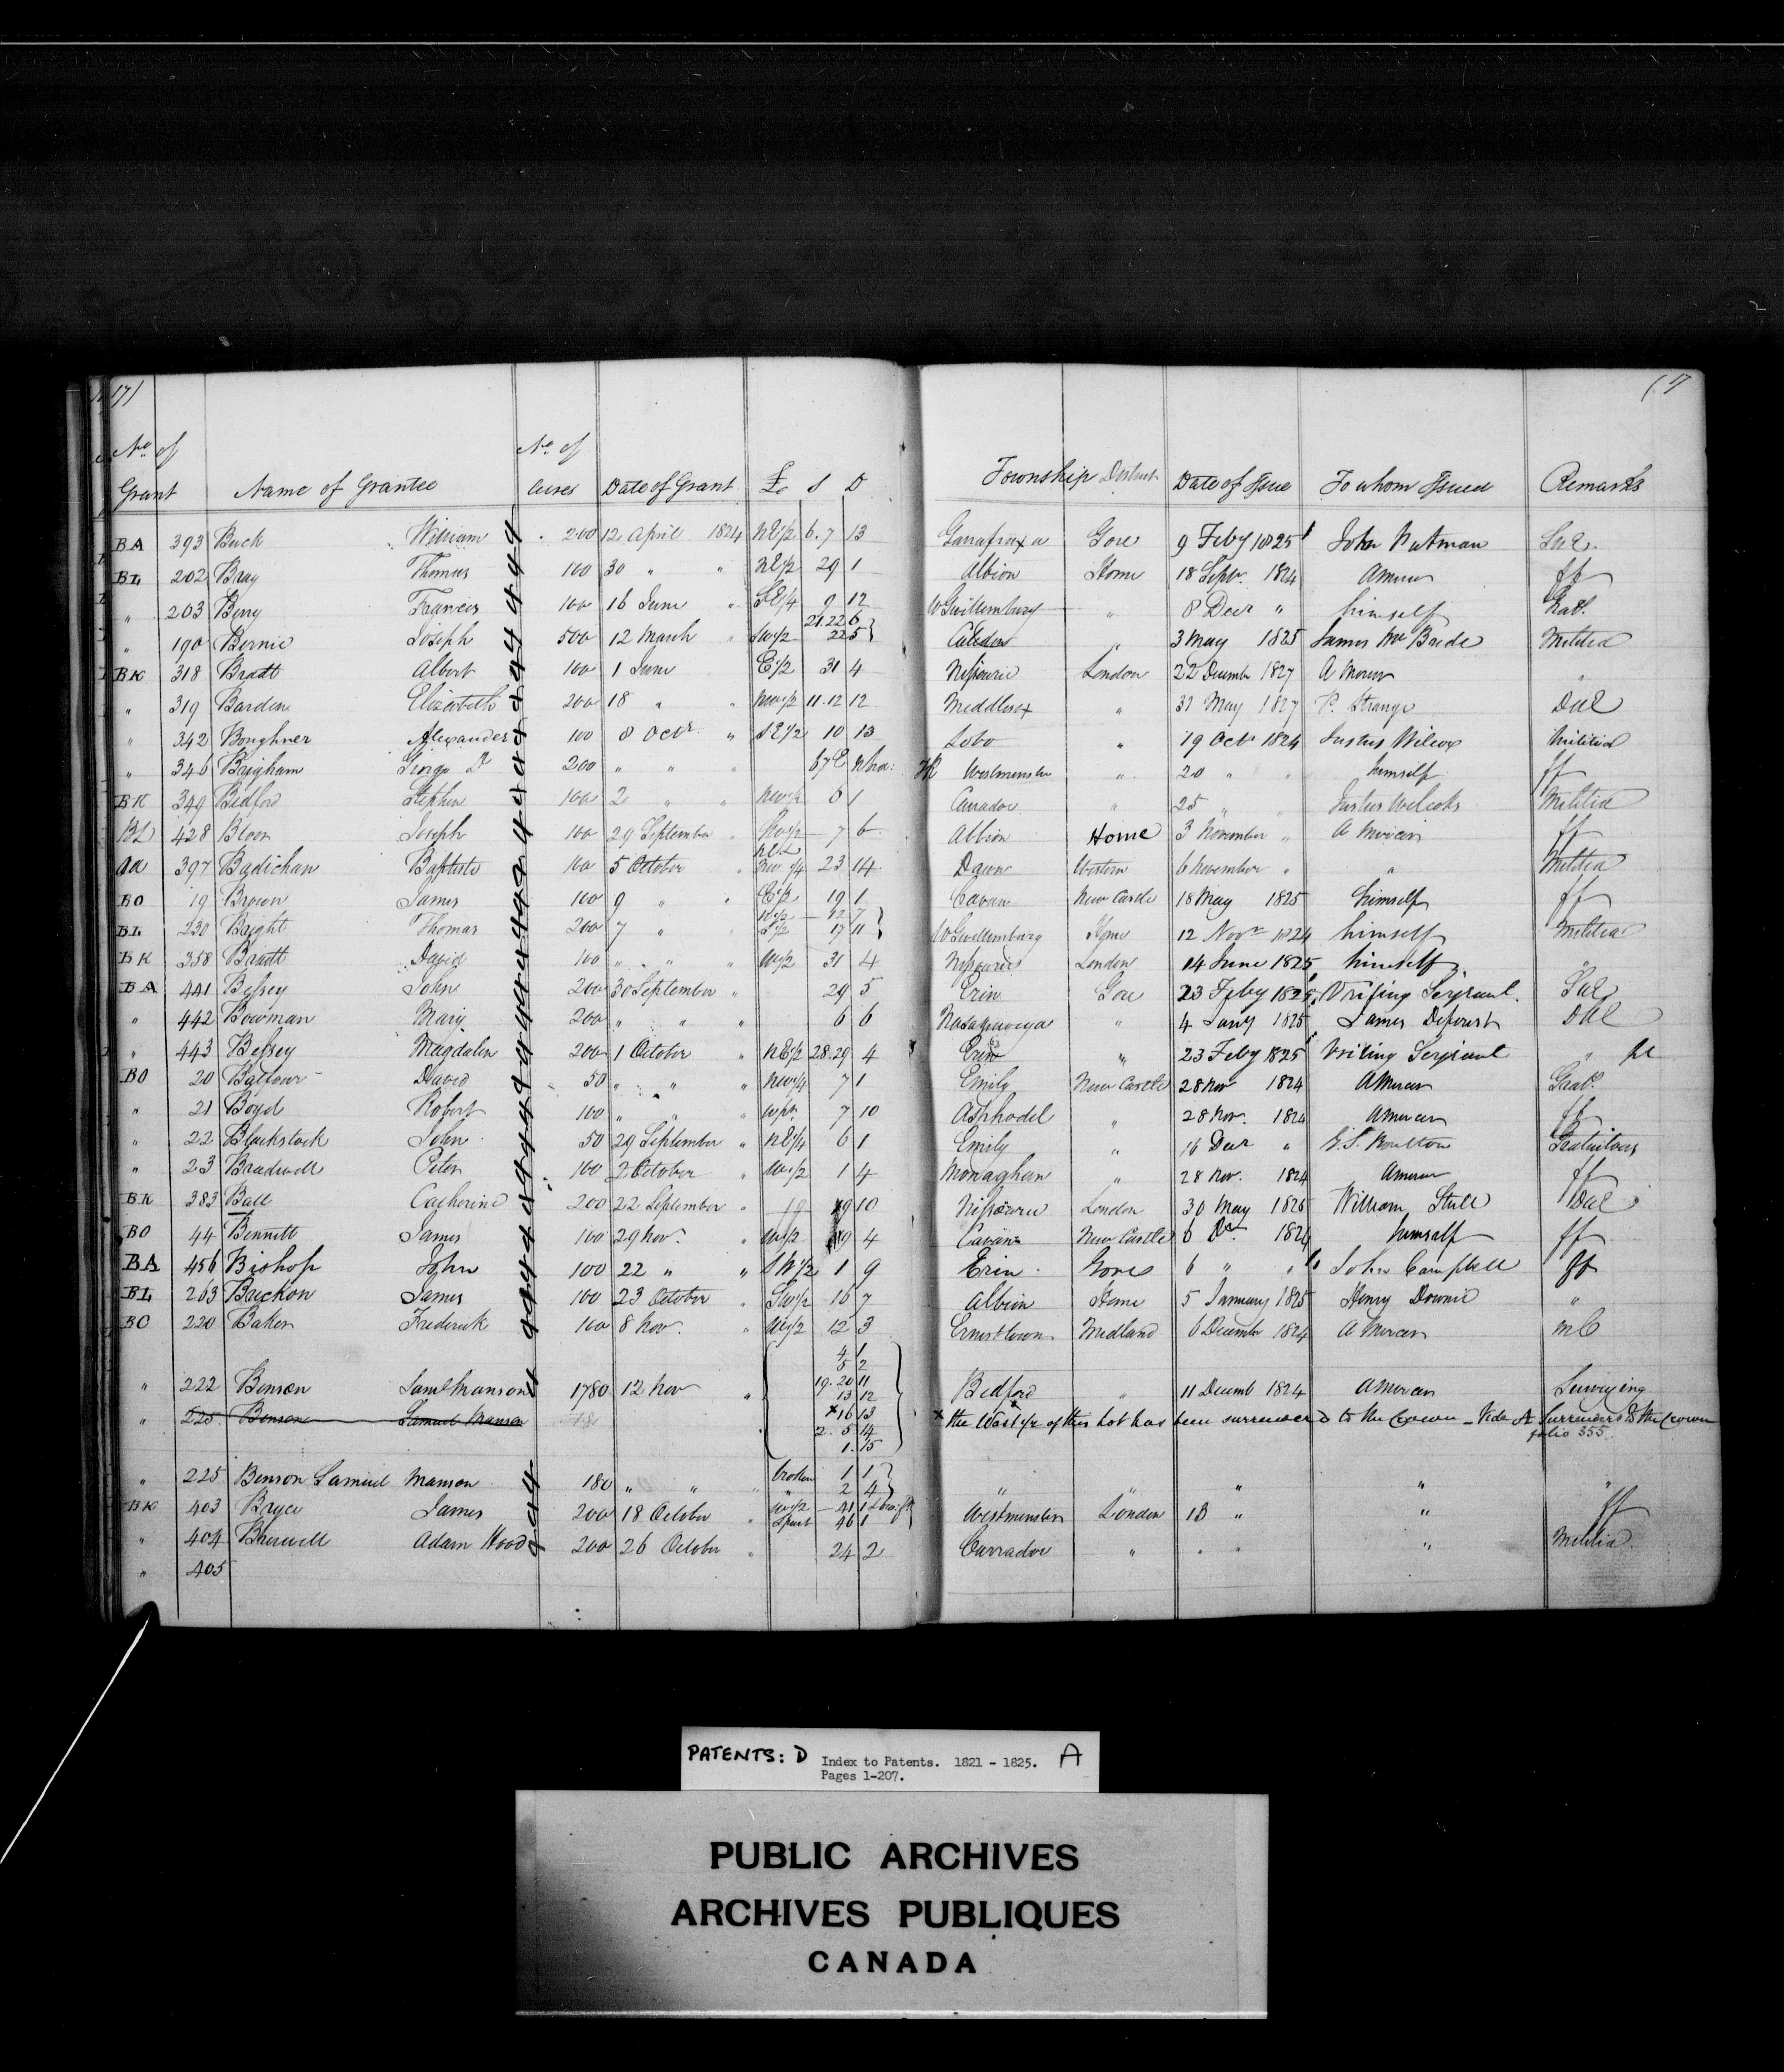 17)
(17
No. of
No. of
Grant Name of Grantee Acres Date of Grant £ S D Township District Date of Issue To whom Issued Remarks
BA 393 Buck William 200 12 April 1824 NE½ 6.7 13 Garrafraxa Gore 9 Feby 1825 John Putman
BL 202 Bray Thomas 100 30 " " NE½ 29 1 Albion Home 18 Septr. 1824 ff
" 203 Berry Francis 100 16 June " SE¼ 9 12 W Gwillimbury " 8 Decr " himself
21.22 6
" 190 Bernie Joseph 500 12 March " SW½ 22 5 Caledon " 3 May 1825 James Mc Bride Militia
BK 318 Bradt Albert 100 1 June E½ 31 4 Nissouri London 22 Decemb 1827 "
" 319 Barden Elizabeth 200 18 " " NW½ 11.12 12 Middlesex " 31 May 1827 P. Strange
" 342 Boughner Alexander 100 8 Octr. " SE½ 10 13 Lobo " 19 Octr 1824 Justus Wilcox Militia
" 346 Brigham George D 200 " " " 67 E Westminster " 20 " " himself ff
BK 349 Bedford Stephen 100 2 " " 6 1 Carradoc " 25 " " Justus Wilcoks Militia
BL 428 Bloor Joseph 100 29 September " 7 6 Albion Home 3 November " ff
397 Badichan Baptiste 100 5 October " 23 14 Dawn Western 6 November " " Militia
BO 19 Brown James 100 9 " " E½ 19 1 Cavan New Castle 18 May 1825 himself ff
BL 230 Bright Thomas 200 7 " 17 11 W Gwillimburg Home 12 Novr 1824 himself Militia
BK 358 Bradt David 100 " " " W½ 31 4 Nissouri London 14 June 1825 himself "
BA 441 Bessey John 200 30 September " 29 5 Erin Gore 23 Feby 1825
" 442 Bowman Mary 200 " " " 6 6 Nassagaweya " 4 Jany 1825 James
" 443 Bessey Magdalen 200 1 October " NE½ 28.29 4 Erin " 23 Feby 1825 "
BO 20 Balfour David 50 " " " NW¼ 7 1 Emily New Castle 28 Nov 1824
" 21 Boyd Robert 100 " " " W½ 7 10 Asphodel " 28 Nov. 1824 ff
" 22 Blackstock John 50 29 September " NE¼ 6 1 Emily " 16 Decr " G.S. Boulton Gratuitous
" 23 Bradwell Peter 100 2 October " W½ 1 4 Monaghan " 28 Nov. 1824 ff
BK 383 Ball Catherine 200 22 September " 19 10 Nissouri London 30 May 1825 William Stull
BO 44 Bennett James 100 29 Nov. " W½ 19 4 Cavan New Castle 6 Dr. 1824 himself ff
BA 456 Bishop John 100 22 " " SW½ 1 9 Erin Gore 6 " " John Campbell ff
BL 263 Brickon James 100 23 October " SW½ 16 7 Albion Home 5 January 1825 Henry Downie "
BO 220 Baker Frederick 100 8 Nov. " W½ 12 3 Ernesttown Midland 6 Decembr 1824 MC
4 1
5 2
19.20 11
" 222 Benson Saml Manson 1780 12 Nov " 13 12 Bedford " 11 Decemb 1824 Surveying
" 225 Benson Samuel Manson x 16 13 x the West ½ of this Lot has been surrendered to the Crown - Vide A Surrenders to the Crown
2. 5 14 folio 355
1. 15
" 225 Benson Samuel Manson 180 " " " broken 1 1 " " " " "
" 2 4
BK 403 Bryce James 200 18 October " W½ 41 1 Westminster London 13 " " ff
Spart 46 1
" 404 Burwell Adam Hood 200 26 October " 24 2 Carradoc " " " " Militia
" 405
PATENTS: D Index to Patents. 1821 - 1825. A
Pages 1-207.
PUBLIC ARCHIVES
ARCHIVES PUBLIQUES
CANADA